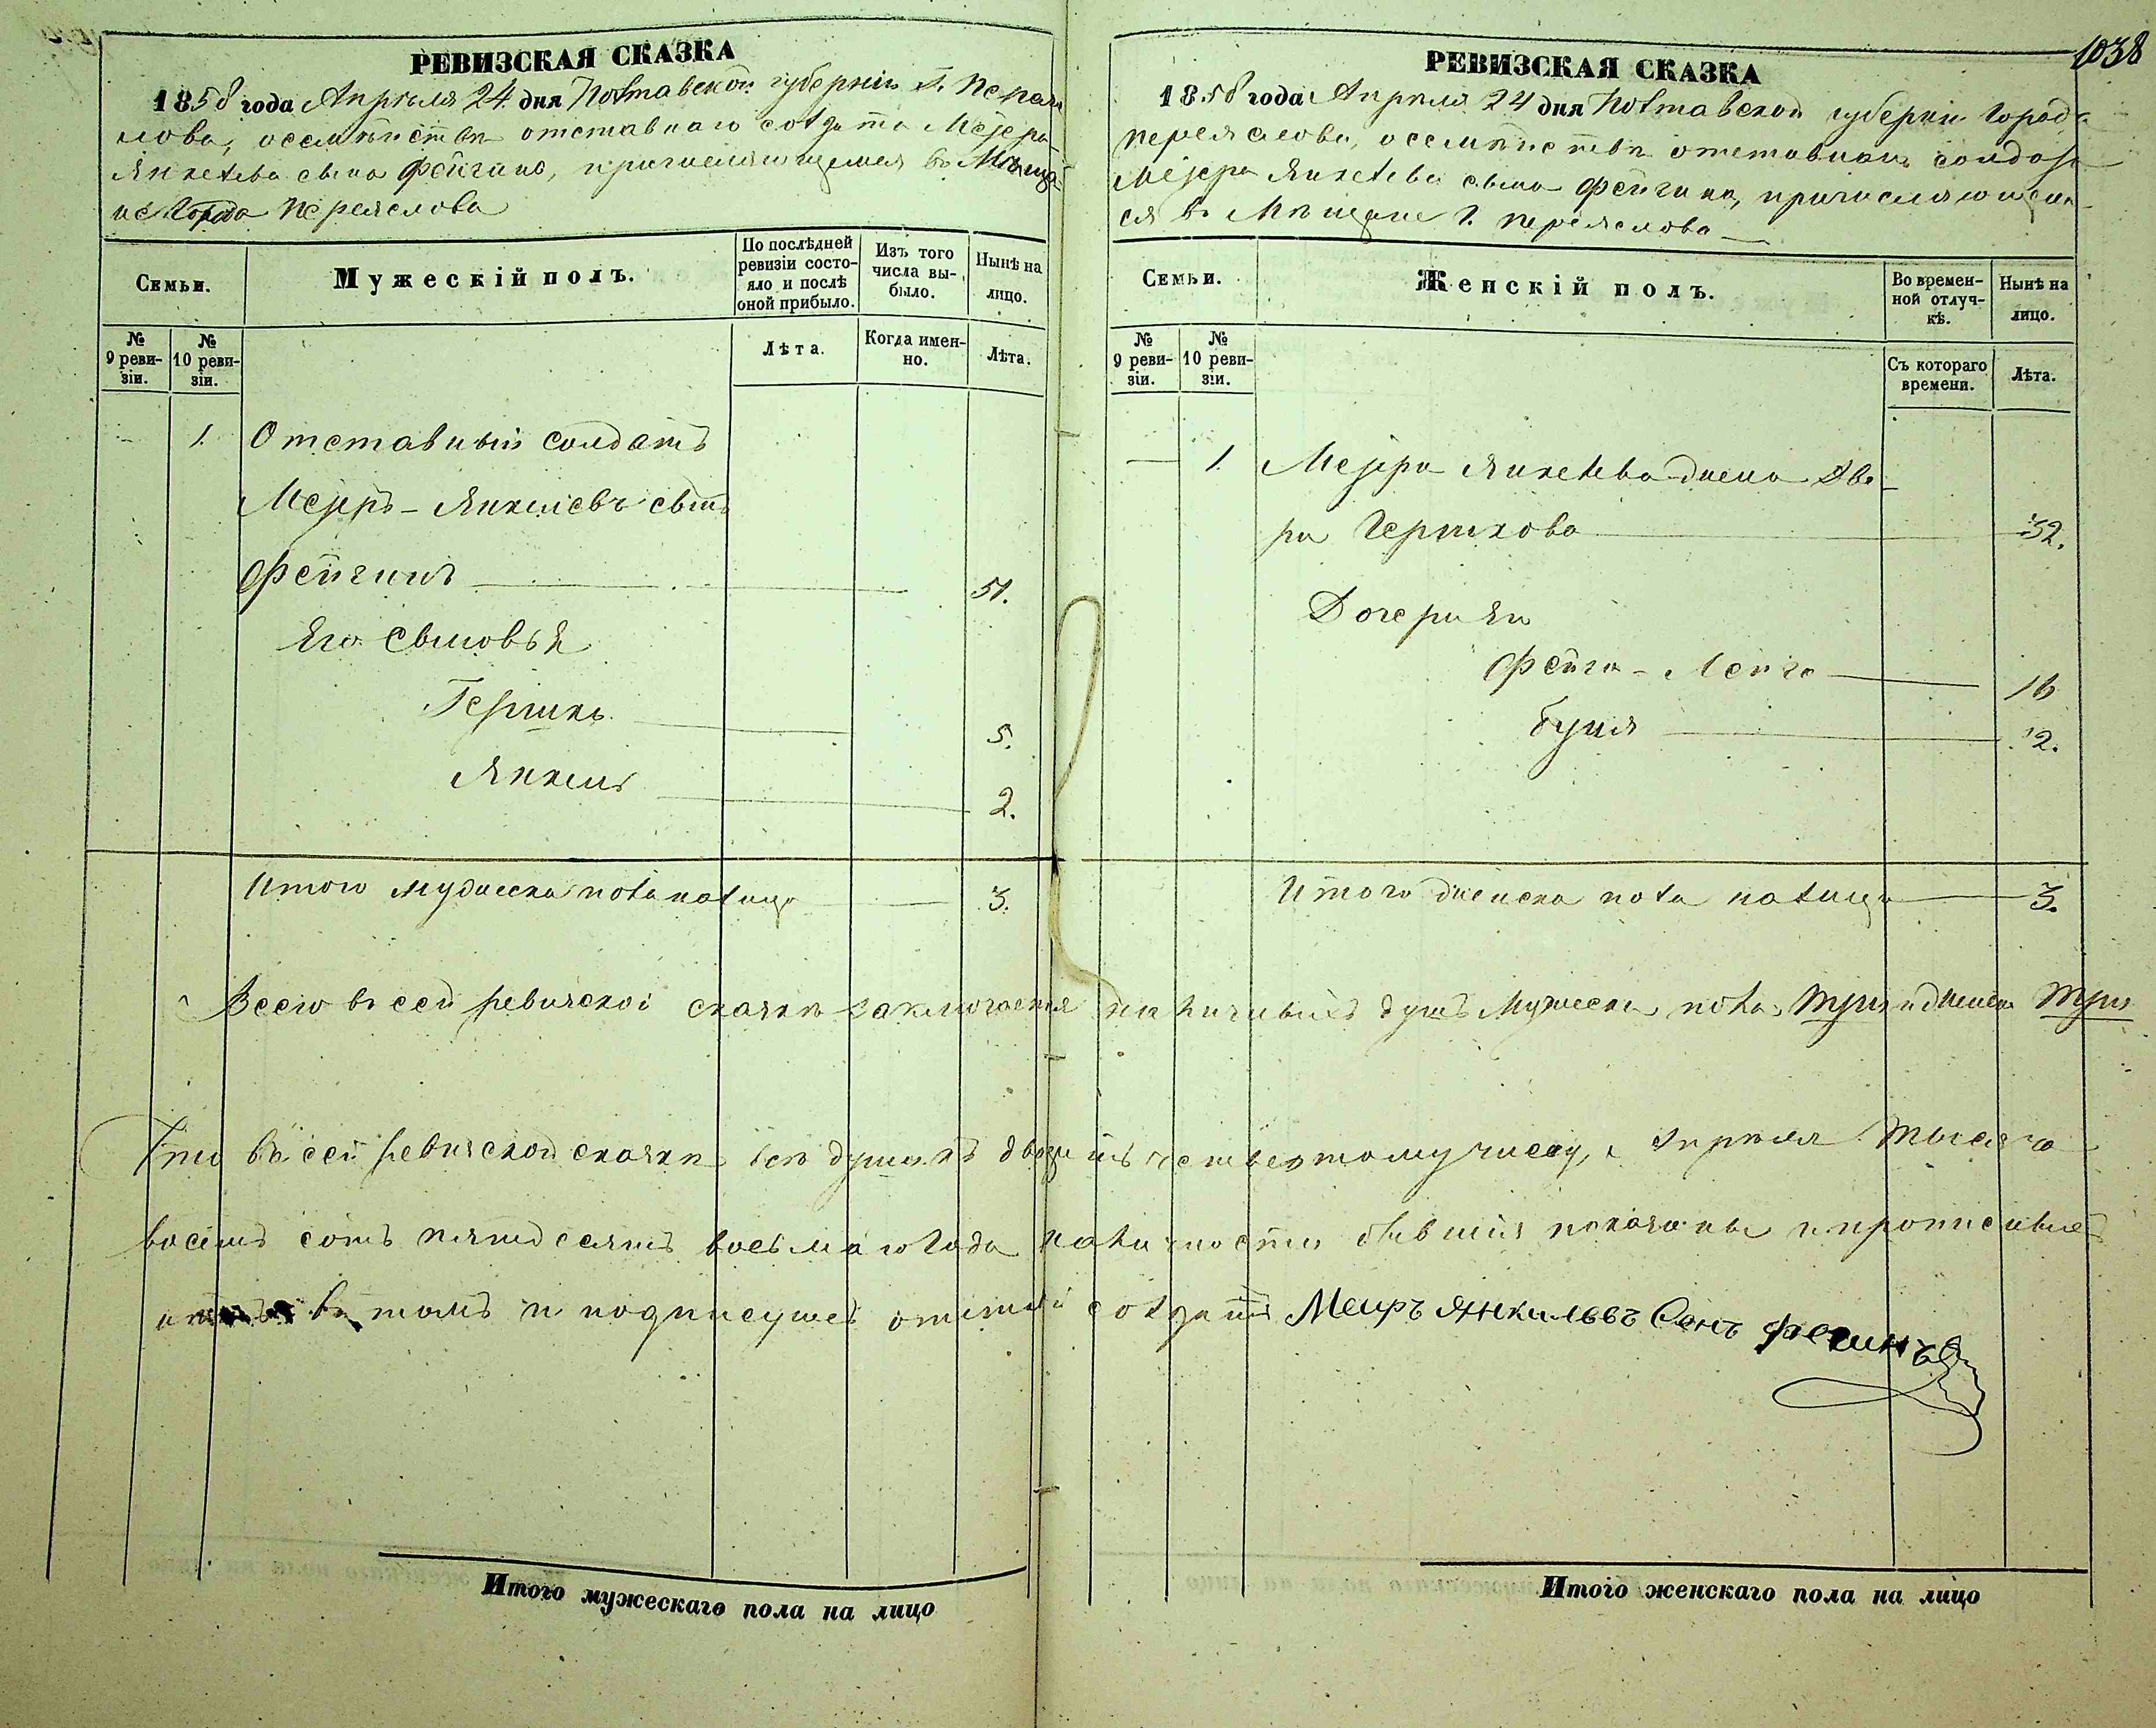 РЕВИЗСКАЯ СКАЗКА
1858 года Апреля 24 дня Полтавской губернии Г. Перея
слова, о семействе отставнаго солдата Меера
Янкелева сына Фейгина, причисляющемся в Меща
не Города Переяслова
Семьи.
Мужескій полъ.
По послѣдней ревизіи состо-
яло и послѣ оной прибыло.
Изъ того числа вы-
было.
Нынѣ на лицо.
№ 9 реви-
зіи.
№ 10 реви-
зіи.
Лѣта.
Когда имен-
но.
Лѣта.
1. Отставный солдатъ
Мееръ-Янкелевъ сынъ
Фейгинъ 51.
Его Сыновья
Гершко 5.
Янкель 2.
Итого мужеска пола налицо 3.
1038
РЕВИЗСКАЯ СКАЗКА
1858 года Апреля 24 дня Полтавской губернии Города
Переяслова, о семействе отставнаго солдата
Меера Янкелева сына Фейгина, причисляющем
ся в Мещане Г. Переяслова
Семьи.
Женскій полъ.
Во времен-
ной отлуч-
кѣ.
Нынѣ на лицо.
№ 9 реви-
зіи.
№ 10 реви-
зіи.
Съ котораго времени.
Лѣта.
1. Меера Янкелева жена Дво
ра Гершкова 32.
Дочери Их
Фейга- 16
Буня 12.
Итого женска пола налицо 3.
Всего в сей ревизской сказке заключается наличныхъ душъ Мужеска пола три и женска три
Что въ сей ревизской сказке все души къ двадцать четвертому числу, Апреля тысяча
восемь сотъ пятьдесятъ восьмаго Года наличности бывшия показаны и прописныхъ
в томъ и подписуюсь солдатъ Меиръ Янкильовъ Сонъ Фегинъ
Итого мужескаго пола на лицо
Итого женскаго пола на лицо